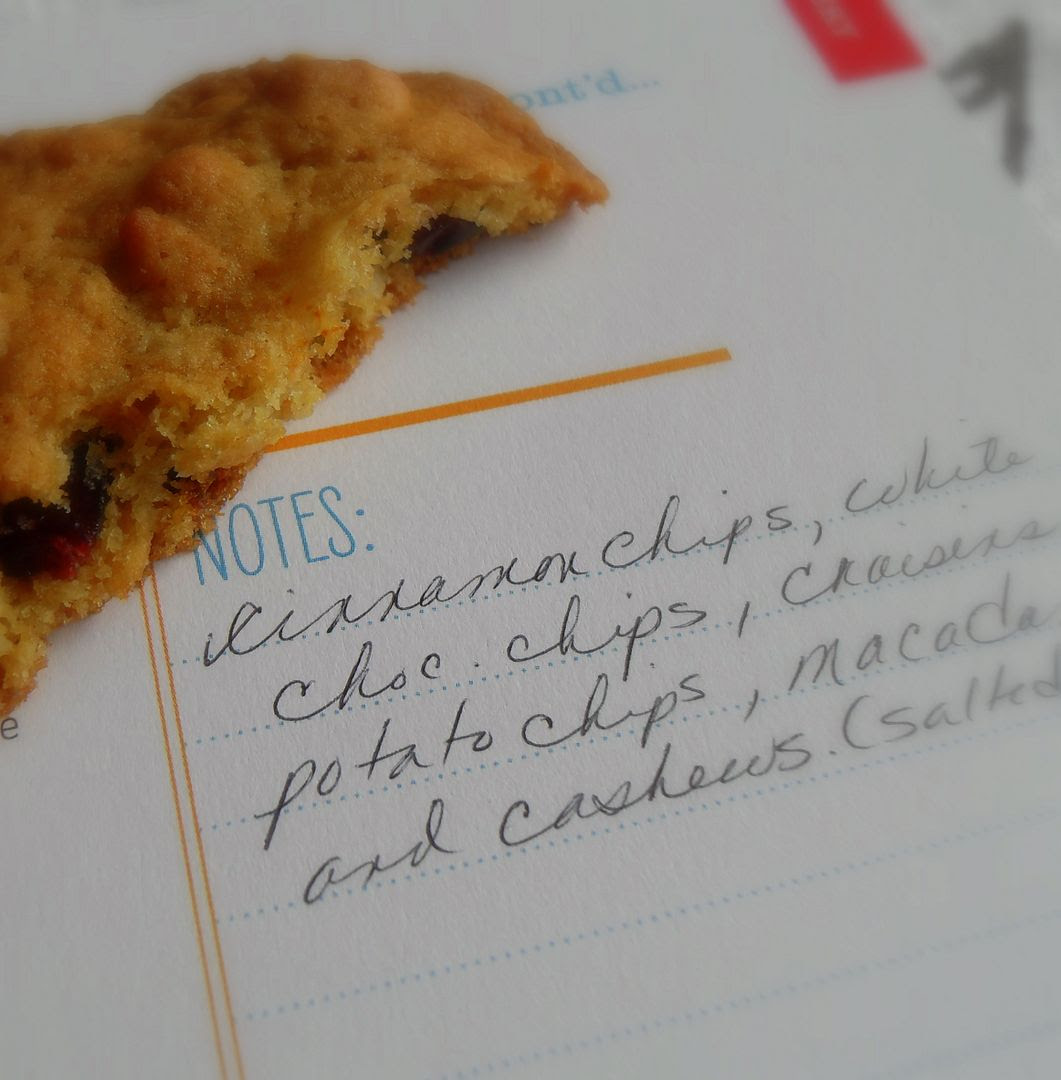 ont'd...
NOTES:
cinnamon chips, white
choc. chips, craisins
potato chips, macada
and cashews. (salted
e